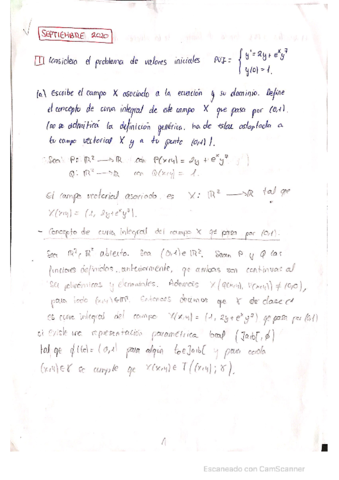 SEPTIEMBRE 2020
1 Considera el problema de valores iniciales PVI = { y' = 2y + eˣy²
y(0) = 1.
(a) Escribe el campo X asociado a la ecuación y su dominio. Define
el concepto de curva integral de este campo X que pasa por (0,1).
(no se admitirá la definición genérica, ha de estar adaptada a
tu campo vectorial X y a tu punto (0,1)).
Son P: ℝ² → ℝ con P(x,y) = 2y + eˣy²
Q: ℝ² → ℝ con Q(x,y) = 1.
El campo vectorial asociado es X: ℝ² → ℝ tal que
X(x,y) = (1, 2y + eˣy²).
- Concepto de curva integral del campo X que pasa por (0,1).
abierto. Sea (0,1) ∈ ℝ². Sean P y Q las
funciones definidas anteriormente, que ambas son continuas al
ser polinómicas y elementales. Además
para todo (x,y) ∈ ℝ². Entonces decimos que γ de clase
es curva integral del campo X(x,y) = (1, 2y + eˣy²) que pasa por (0,1)
si existe una representación paramétrica local (]a,b[, ϕ)
tal que ϕ(t₀) = (0,1) para algún t₀ ∈ ]a,b[ y para cada
(x,y) ∈ γ se cumple que X(x,y) ∈ T((x,y); γ).
Escaneado con CamScanner